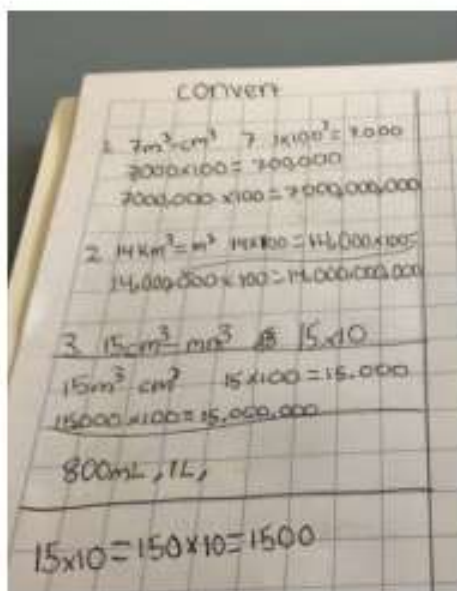 convert
1. 7m³=cm³ 7 1x100³=7.000
7000x100=700,000
7000,000 x100=7000,000,000
2. 14Km³=m³ 14x100=14,000x100=
14,000,000x100=14,000,000,000
3. 15cm³ mm³ 15x10
15m³ cm³ 15x100=15.000
15000x100=15,000,000
800mL, 1L,
15x10=150x10=1500